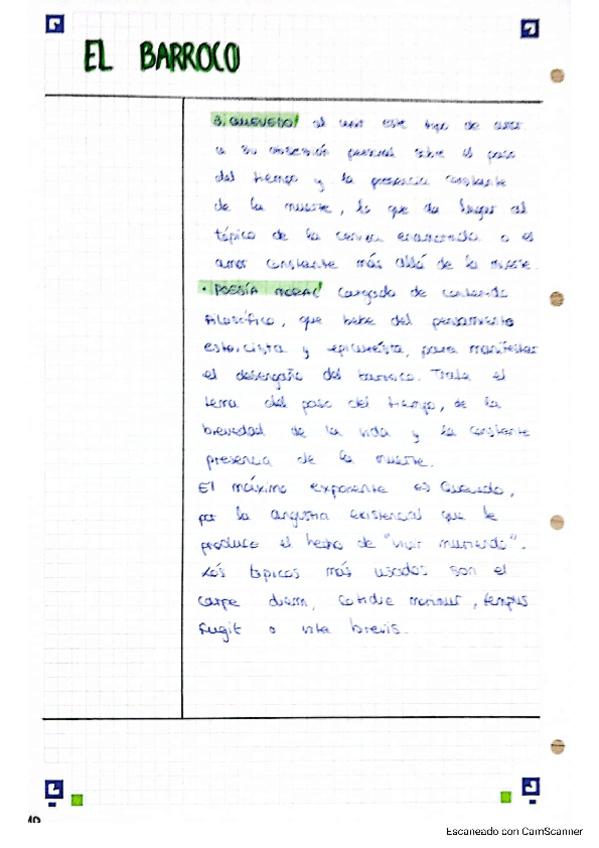 EL BARROCO
3. QUEVEDO/ al unir este tipo de amor
a su obsesión personal sobre el paso
del tiempo y la presencia constante
de la muerte, lo que da lugar al
tópico de la ceniza enamorada o el
amor constante más allá de la muerte.
• POESÍA MORAL/ Cargada de contenido
filosófico, que bebe del pensamiento
estoicista y epicureísta, para manifestar
el desengaño del barroco. Trata el
tema del paso del tiempo, de la
brevedad de la vida y la constante
presencia de la muerte.
El máximo exponente es Quevedo,
por la angustia existencial que le
produce el hecho de "vivir muriendo".
Los tópicos más usados son el
carpe diem, cotidie morimur, tempus
fugit o vita brevis.
Escaneado con CamScanner